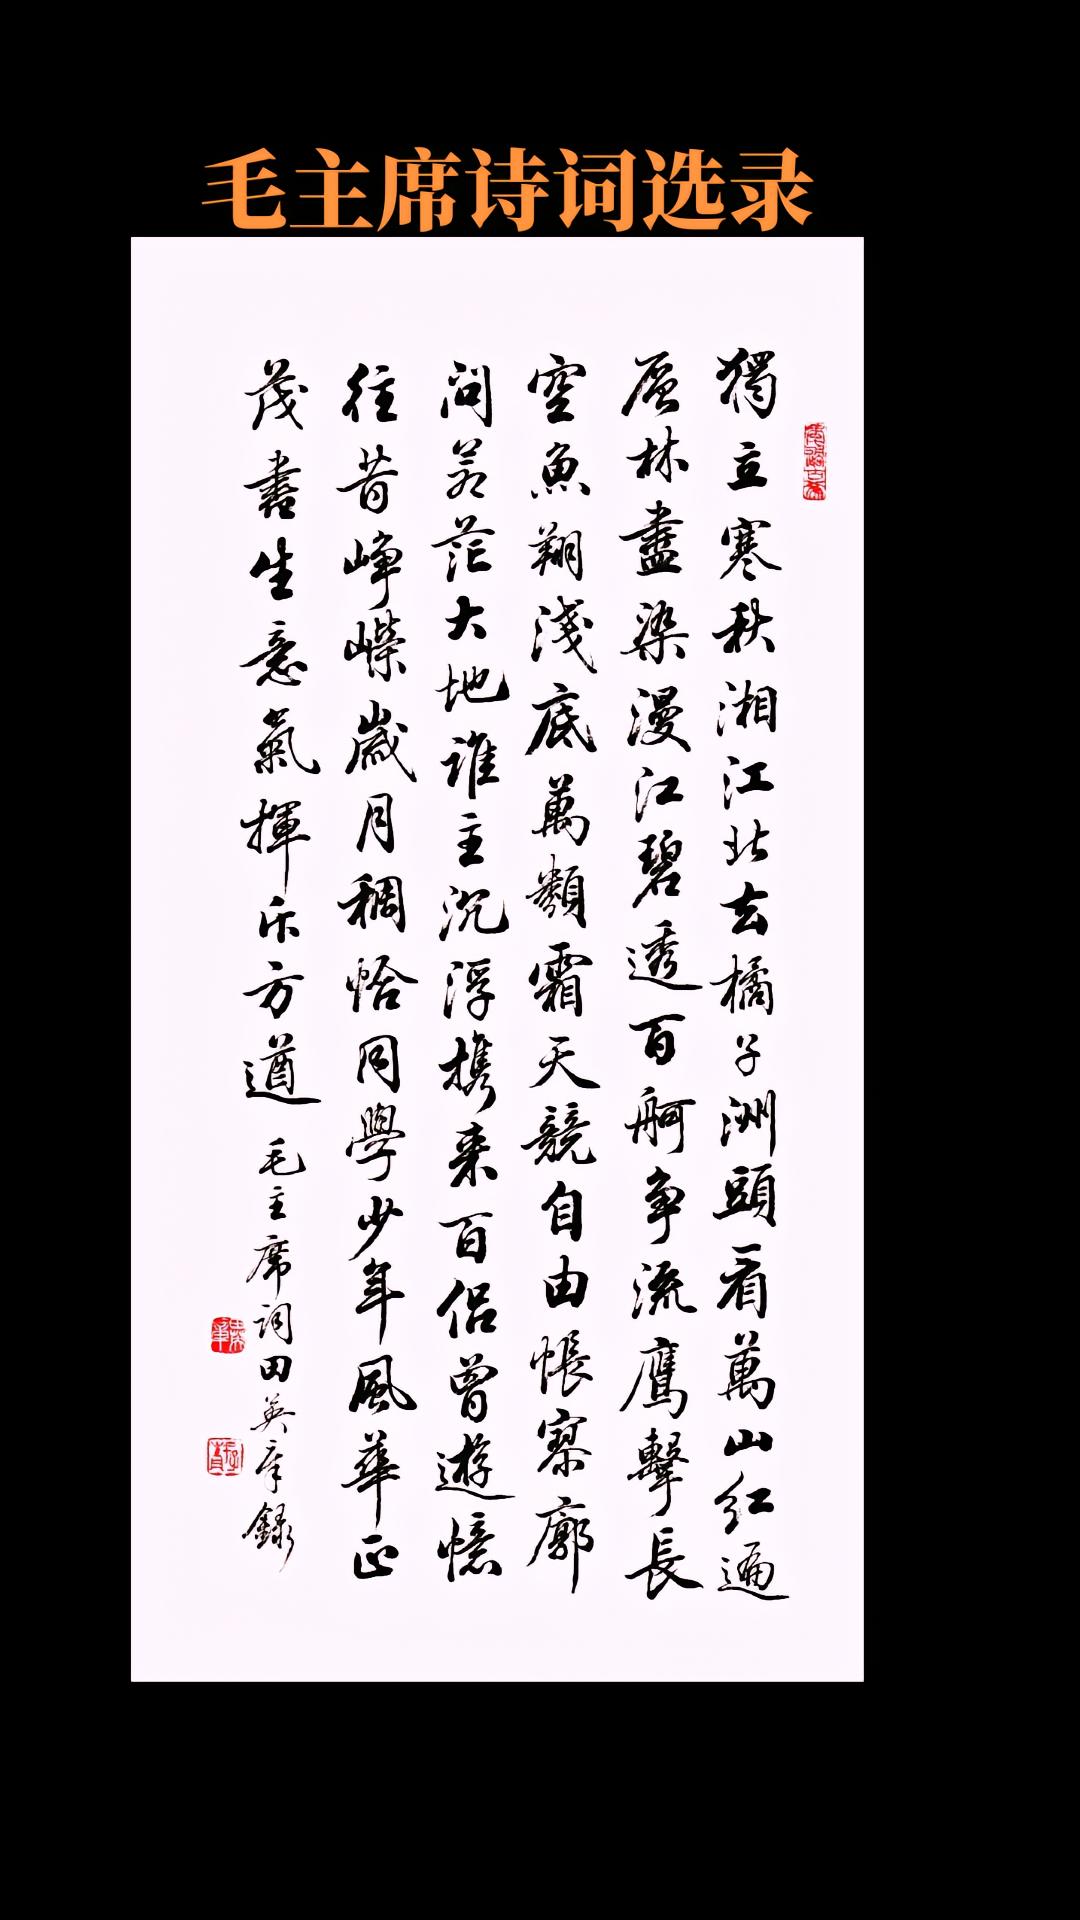 毛主席诗词选录
獨立寒秋湘江北去橘子洲頭看萬山紅遍
層林盡染漫江碧透百舸争流鷹擊長
空魚翔淺底萬類霜天競自由悵寥廓
问蒼茫大地谁主沉浮携来百侣曾遊憶
往昔崢嶸歲月稠恰同學少年風華正
茂書生意氣揮斥方遒
毛主席词田英章錄